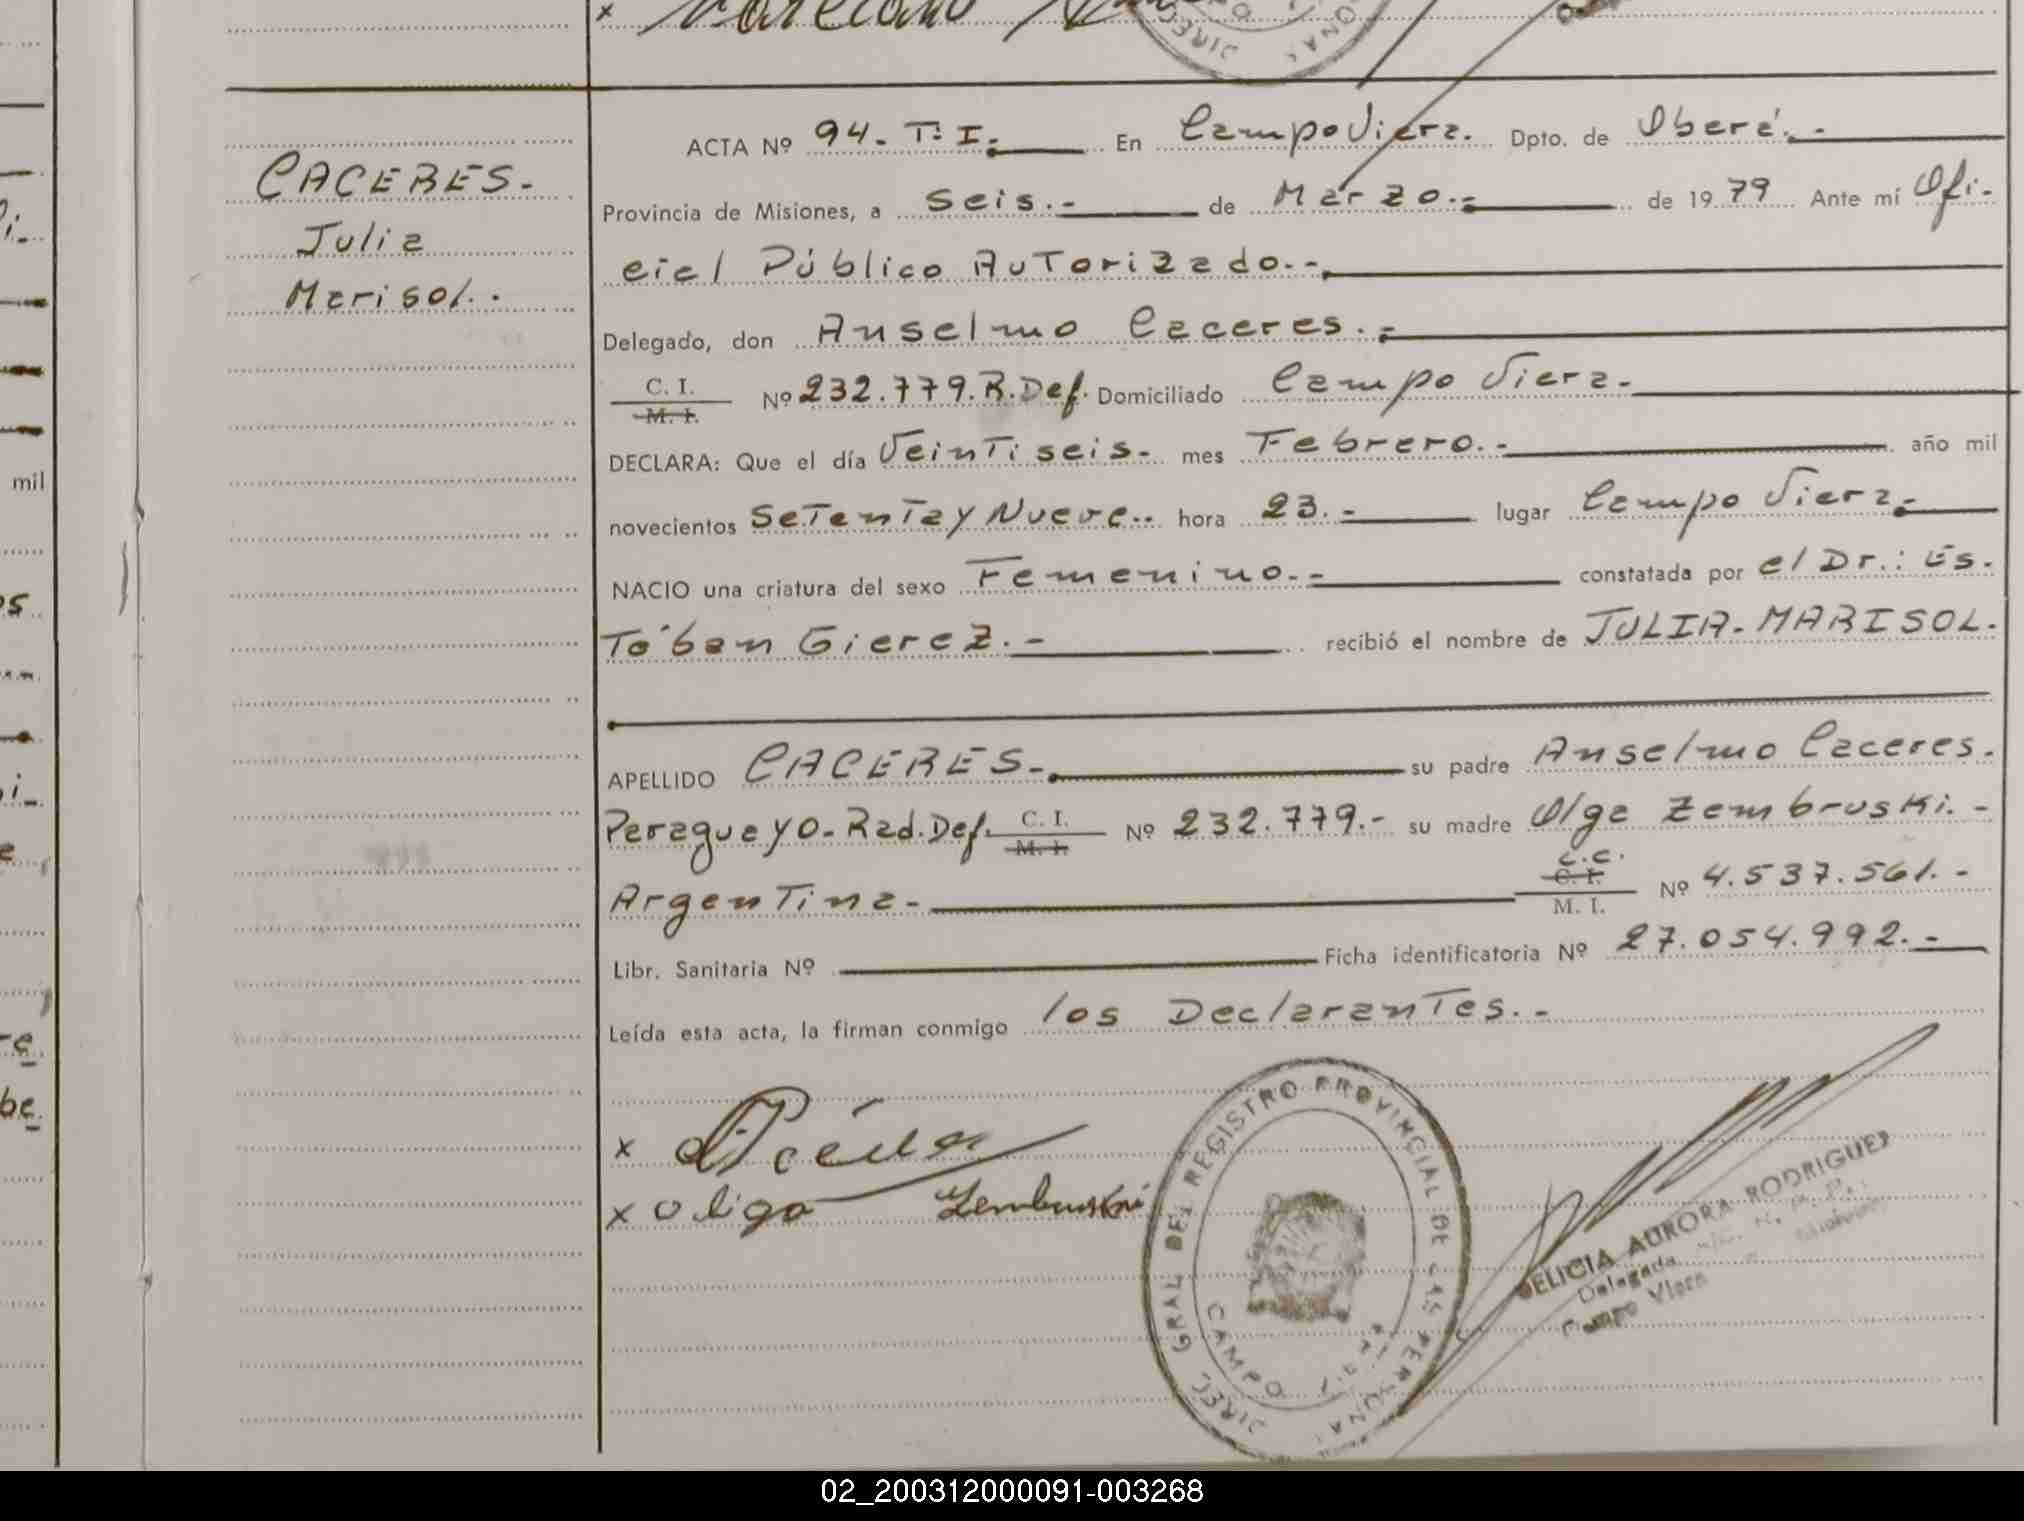 CACERES.-
Julia
Marisol..
ACTA Nº 94.- T: I.- En Campo Viera. Dpto. de Oberá.-
Provincia de Misiones, a seis.- de Marzo.- de 1979 Ante mí Ofi-
cial Público Autorizado.-
Delegado, don Anselmo Caceres.-
C. I.
M. I.
Nº 232.779.R.Def. Domiciliado Campo Viera.-
DECLARA: Que el día Veintiseis.- mes Febrero.- año mil
novecientos Setenta y Nueve.. hora 23.- lugar Campo Viera.-
NACIO una criatura del sexo Femenino.- constatada por el Dr.: Es-
Tóban Gierez.- recibió el nombre de JULIA-MARISOL.
APELLIDO CACERES.- su padre Anselmo Caceres.
Paraguayo-Rad.Def. C. I. Nº 232.779.- su madre Olga Zembruski.-
M. I.
C.C.
C. I.
Argentina.- Nº 4.537.561.-
M. I.
Libr. Sanitaria Nº Ficha identificatoria Nº 27.054.992.-
Leída esta acta, la firman conmigo los Declarantes.-
x
x Oliga Zembruski
DIREC. GRAL DEL REGISTRO PROVINCIAL DE LAS PERSONAS
CAMPO
DELICIA AURORA RODRIGUEZ
Delegada
Campo Viera
mil
02_200312000091-003268